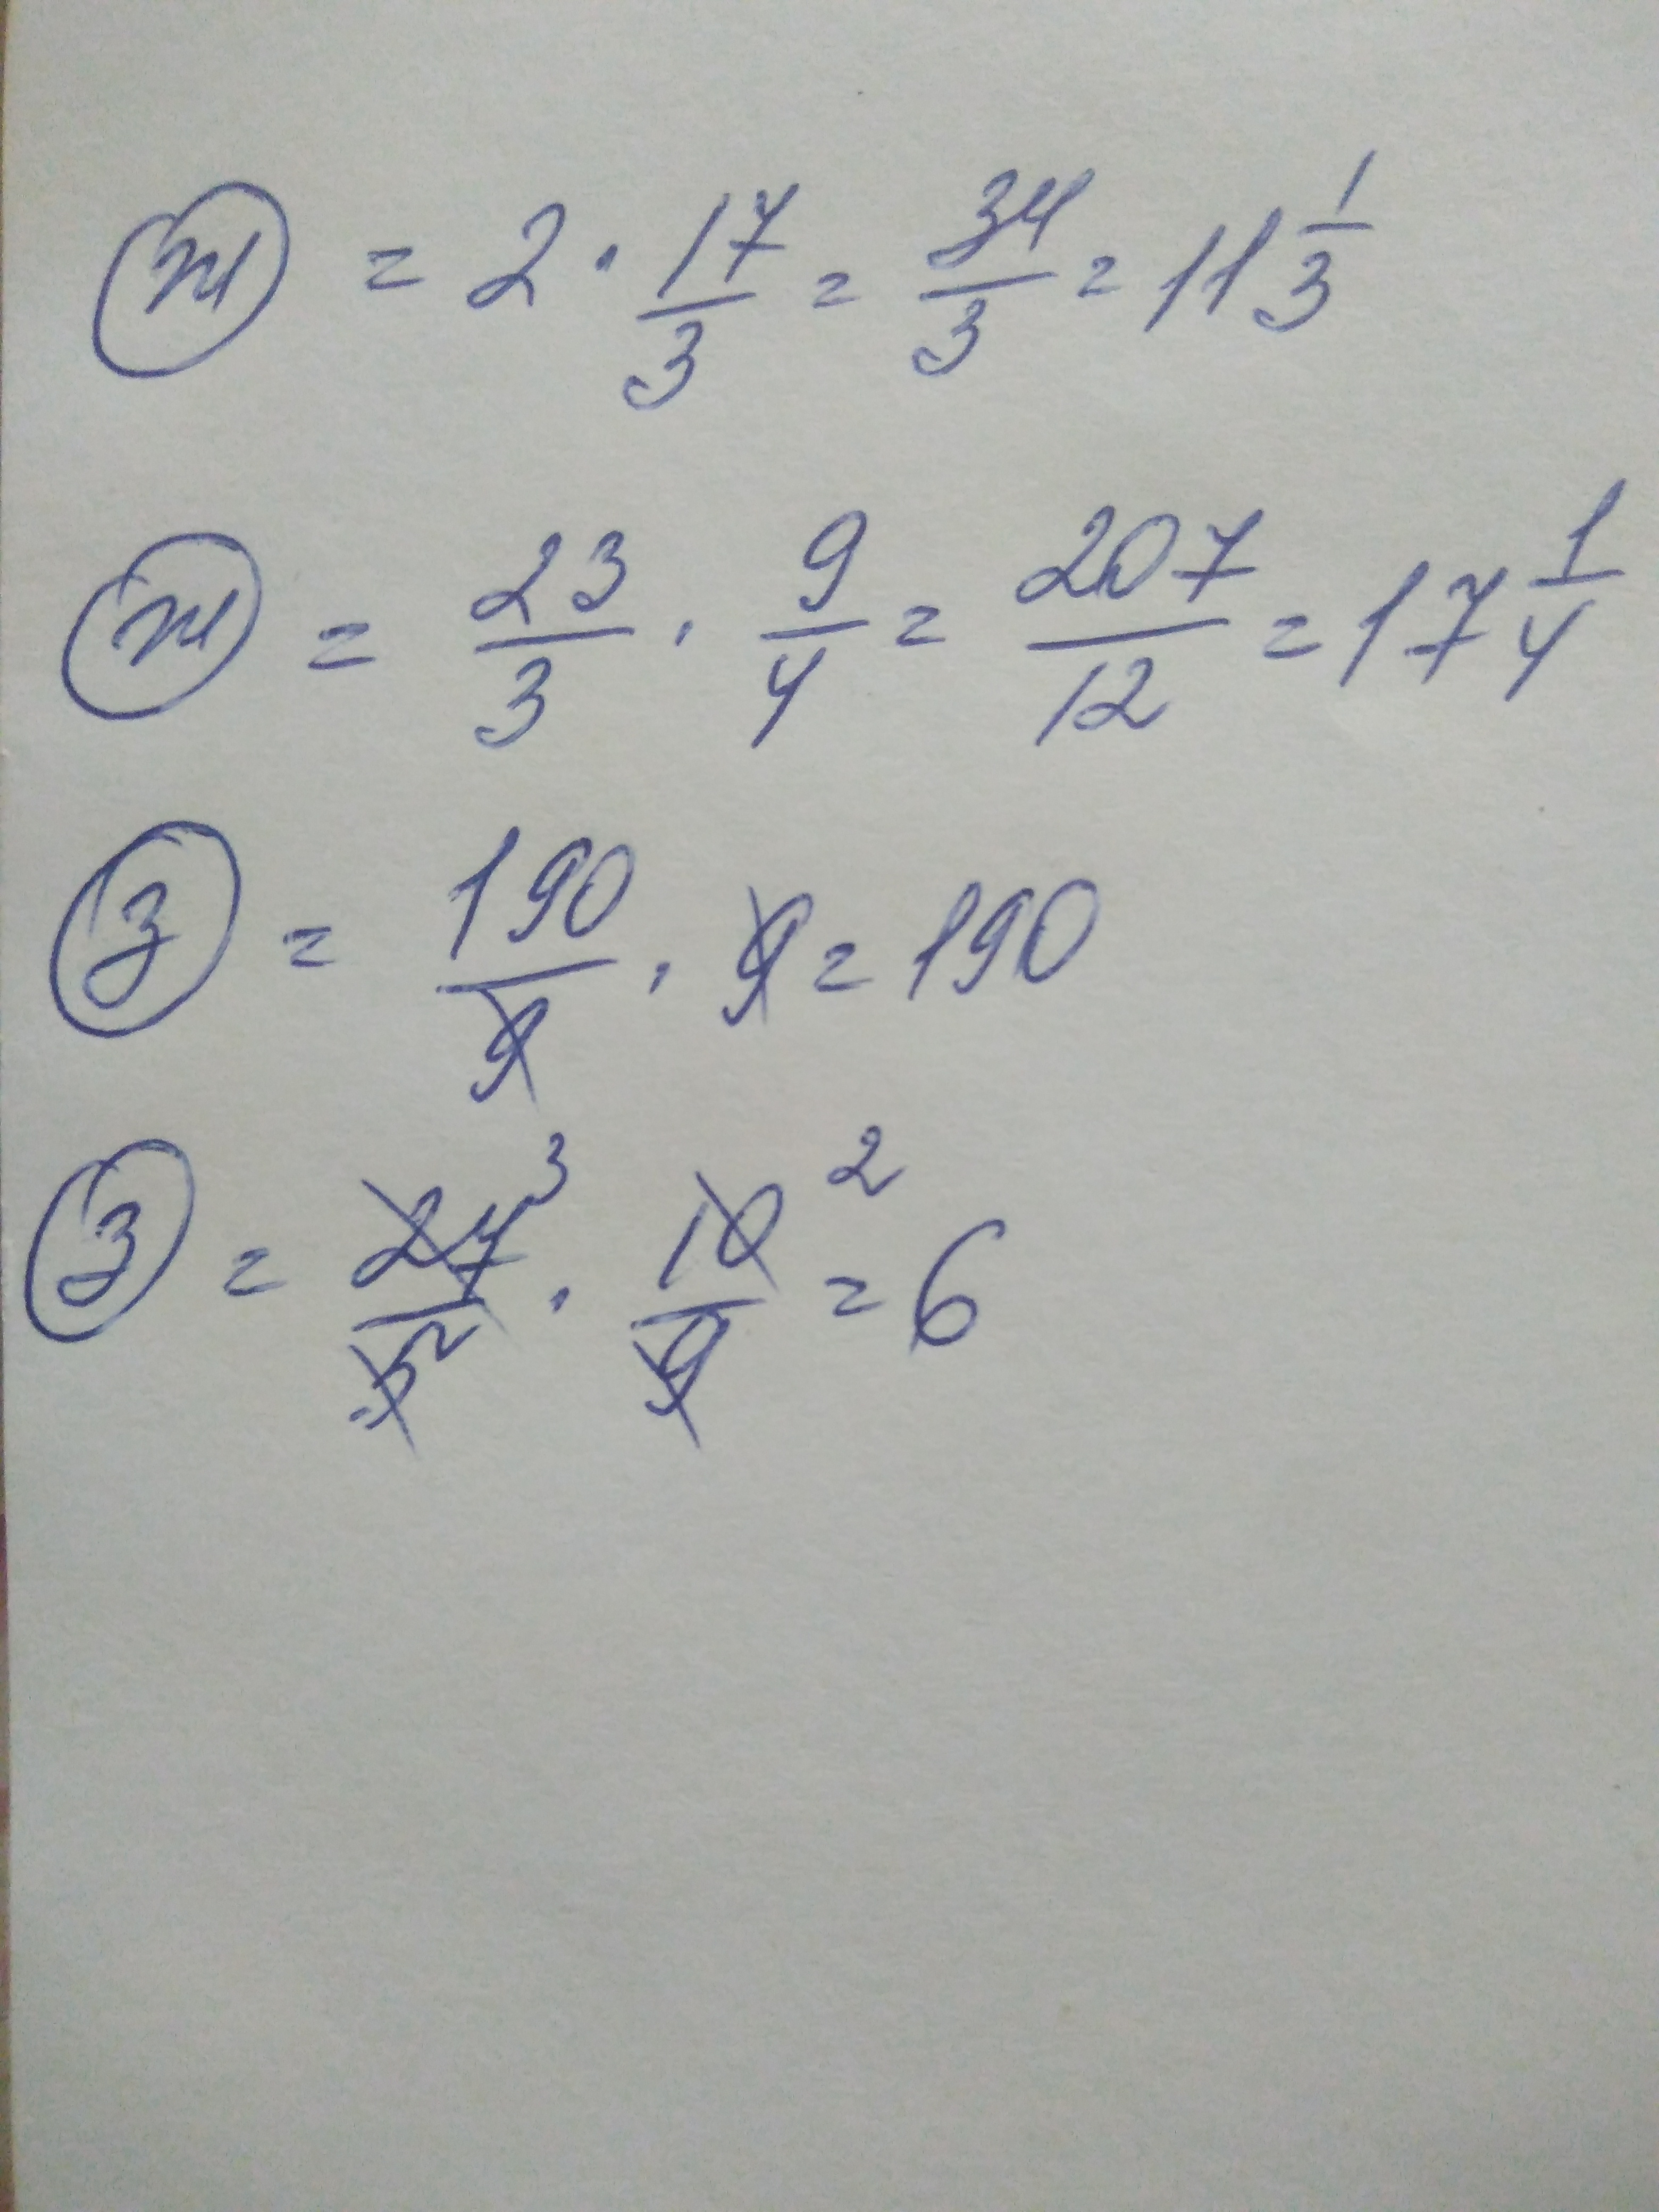 ж = 2 · 17/3 = 34/3 = 11 1/3
ж = 23/3 · 9/4 = 207/12 = 17 1/4
з = 190/9 · 9 = 190
з = 27/5 ³ · 10/9 ² = 6